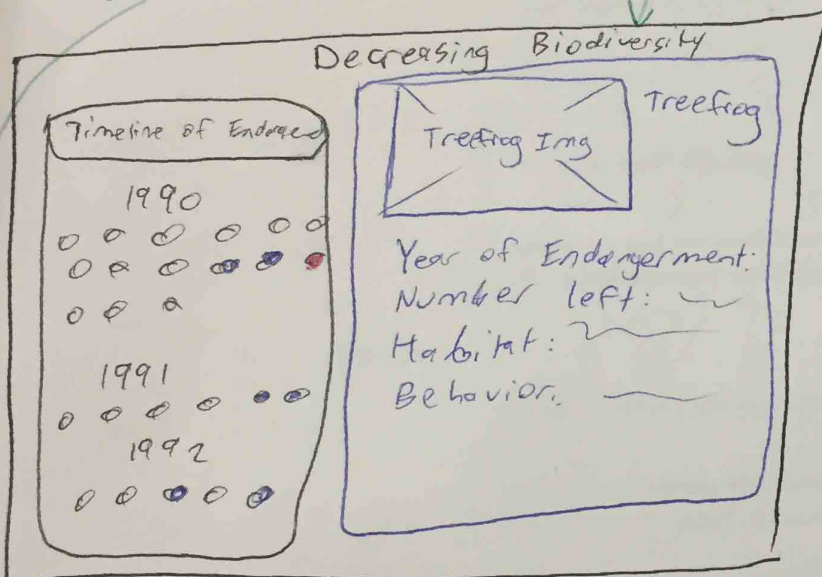 Decreasing Biodiversity
Timeline of Endangered
1990
1991
1992
Treefrog
Treefrog Img
Year of Endangerment:
Number left:
Habitat:
Behavior: